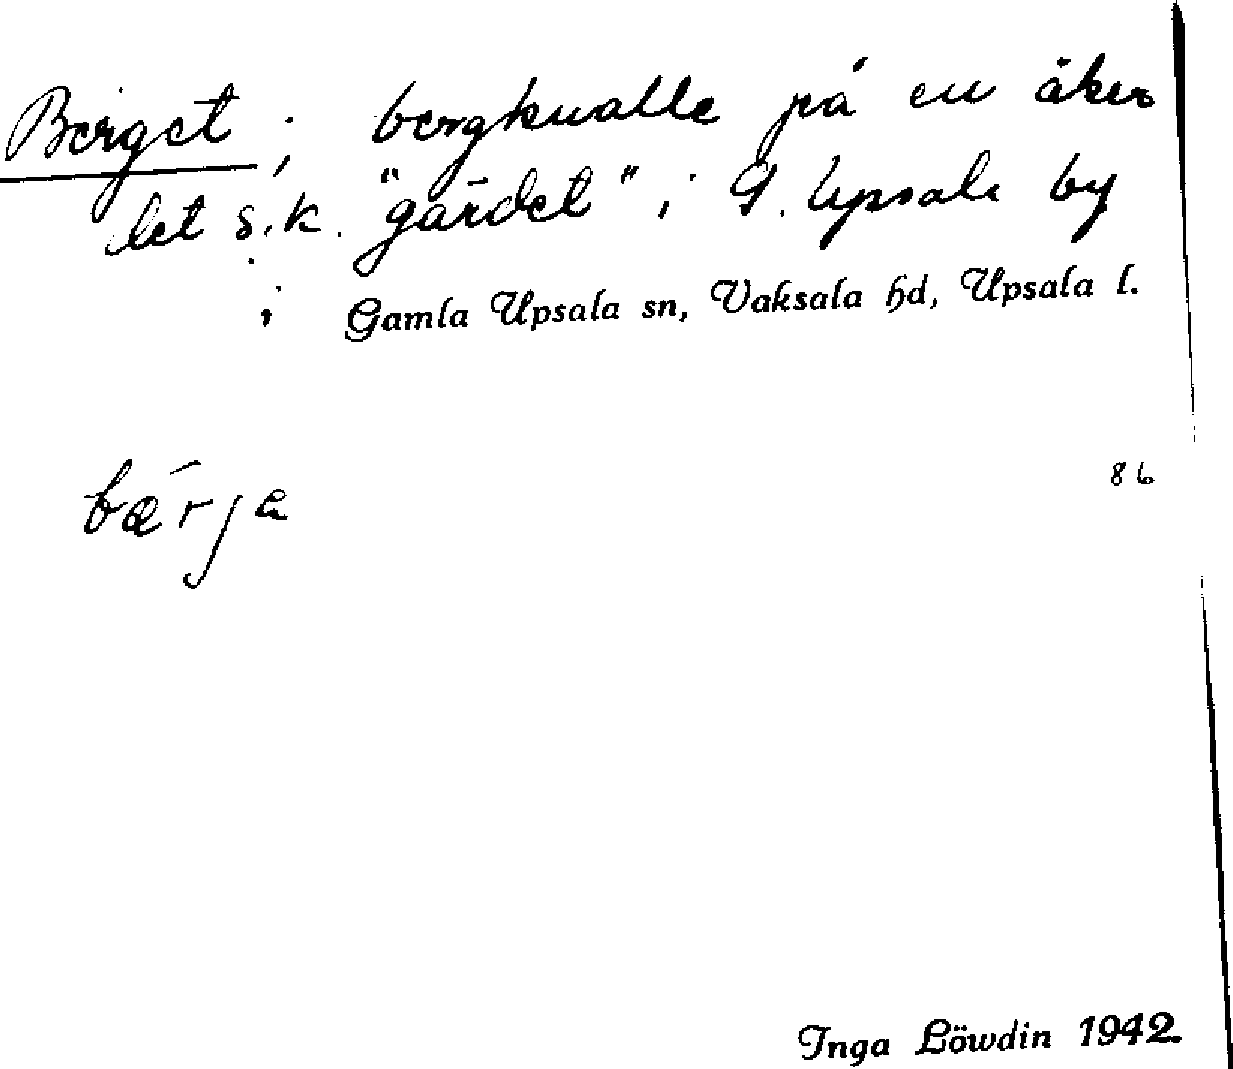 Berget; bergknalle på en åker
det s.k. "gärdet" i G. Upsala by
i Gamla Upsala sn, Vaksala hd, Upsala l.
86
bærja
Inga Löwdin 1942.